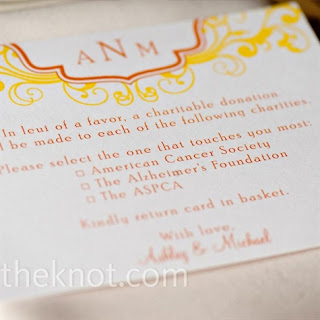 A N M
In leut of a favor, a charitable donation
ll be made to each of the following charities.
Please select the one that touches you most:
American Cancer Society
The Alzheimer's Foundation
The ASPCA
Kindly return card in basket.
With love,
Ashley & Michael
theknot.com